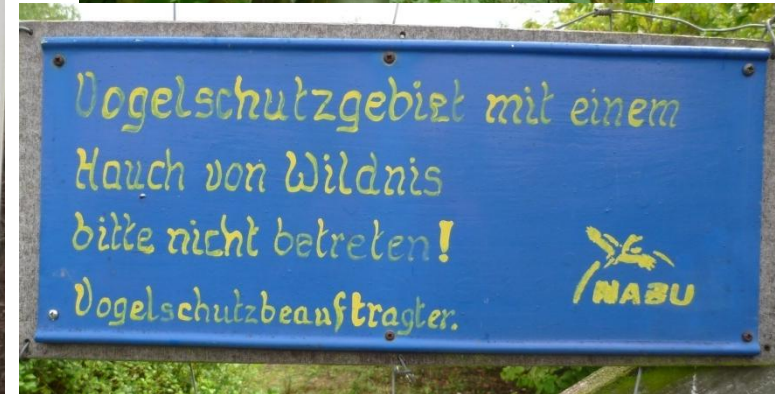 Vogelschutzgebiet mit einem
Hauch von Wildnis
bitte nicht betreten!
Vogelschutzbeauftragter.
NABU